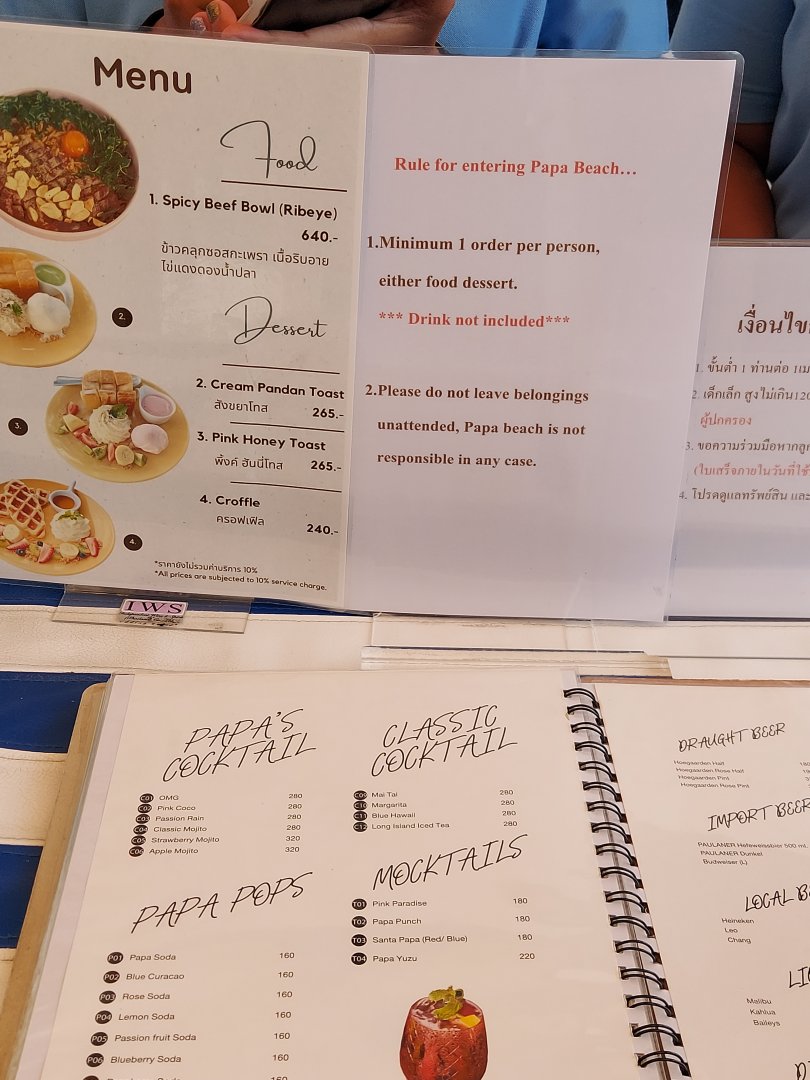 Menu
Food
1. Spicy Beef Bowl (Ribeye)
640.-
ข้าวคลุกซอสกะเพรา เนื้อริบอาย
ไข่แดงดองน้ำปลา
Dessert
2.
2. Cream Pandan Toast
สังขยาโทส 265.-
3.
3. Pink Honey Toast
พิ้งค์ ฮันนี่โทส 265.-
4. Croffle
ครอฟเฟิล 240.-
4.
*ราคายังไม่รวมค่าบริการ 10%
*All prices are subjected to 10% service charge.
IWS
Rule for entering Papa Beach...
1.Minimum 1 order per person,
either food dessert.
*** Drink not included***
2.Please do not leave belongings
unattended, Papa beach is not
responsible in any case.
1. ขั้นต่ำ 1 ท่านต่อ
2. เด็กเล็ก
ผู้ปกครอง
3. ขอความร่วมมือ
4. โปรดดูแลทรัพย์สิน และ
PAPA'S
COCKTAIL
C01 OMG 280
C02 Pink Coco 280
C03 Passion Rain 280
C04 Classic Mojito 280
C05 Strawberry Mojito 320
C06 Apple Mojito 320
PAPA POPS
P01 Papa Soda 160
P02 Blue Curacao 160
P03 Rose Soda 160
P04 Lemon Soda 160
P05 Passion fruit Soda 160
P06 Blueberry Soda 160
CLASSIC
COCKTAIL
C09 Mai Tai 280
C10 Margarita 280
C11 Blue Hawaii 280
C12 Long Island Iced Tea 280
MOCKTAILS
T01 Pink Paradise 180
T02 Papa Punch 180
T03 Santa Papa (Red/ Blue) 180
T04 Papa Yuzu 220
DRAUGHT BEER
Hoegaarden Half
Hoegaarden Rose Half
Hoegaarden Pint
Hoegaarden Rose Pint
IMPORT BEER
PAULANER Hefeweissbier 500 ml.
PAULANER Dunkel
Budweiser (L)
LOCAL
Heineken
Leo
Chang
Malibu
Kahlua
Baileys